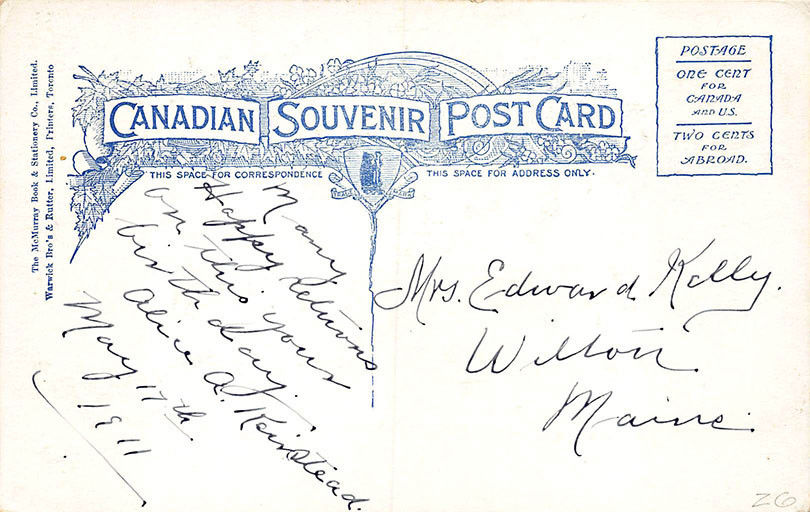 CANADIAN SOUVENIR POST CARD
POSTAGE
ONE CENT
FOR
CANADA
AND U.S.
TWO CENTS
FOR
ABROAD.
The McMurray Book & Stationery Co., Limited.
Warwick Bro's & Rutter, Limited, Printers, Toronto
THIS SPACE FOR CORRESPONDENCE
THIS SPACE FOR ADDRESS ONLY.
Many
Happy returns
on this your
birthday.
Alice A. Keirstead.
May 17th.
1911
Mrs. Edward Kelly.
Wilton.
Maine.
26